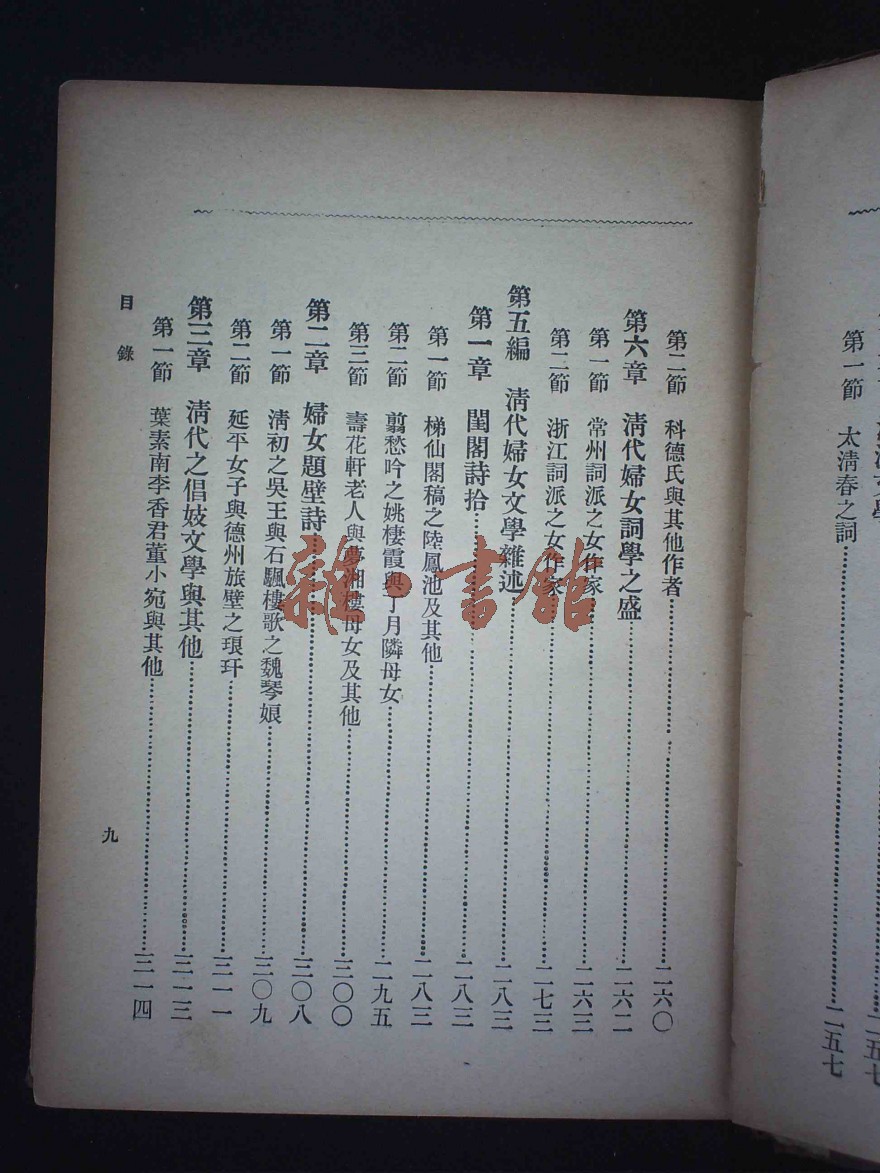 第一節　太清春之詞……二五七
第二節　科德氏與其他作者……二六〇
第六章　清代婦女詞學之盛……二六二
第一節　常州詞派之女作家……二六三
第二節　浙江詞派之女作家……二七三
第五編　清代婦女文學雜述……二八三
第一章　閨閣詩拾……二八三
第一節　梯仙閣稿之陸鳳池及其他……二八三
第二節　翦愁吟之姚棲霞與丁月隣母女……二九五
第三節　壽花軒老人與夢湘樓母女及其他……三〇〇
第二章　婦女題壁詩……三〇八
第一節　清初之吳王與石驪樓歌之魏琴娘……三〇九
第二節　延平女子與德州旅壁之琅玕……三一一
第三章　清代之倡妓文學與其他……三一三
第一節　葉素南李香君董小宛與其他……三一四
目錄
九
雜·書館